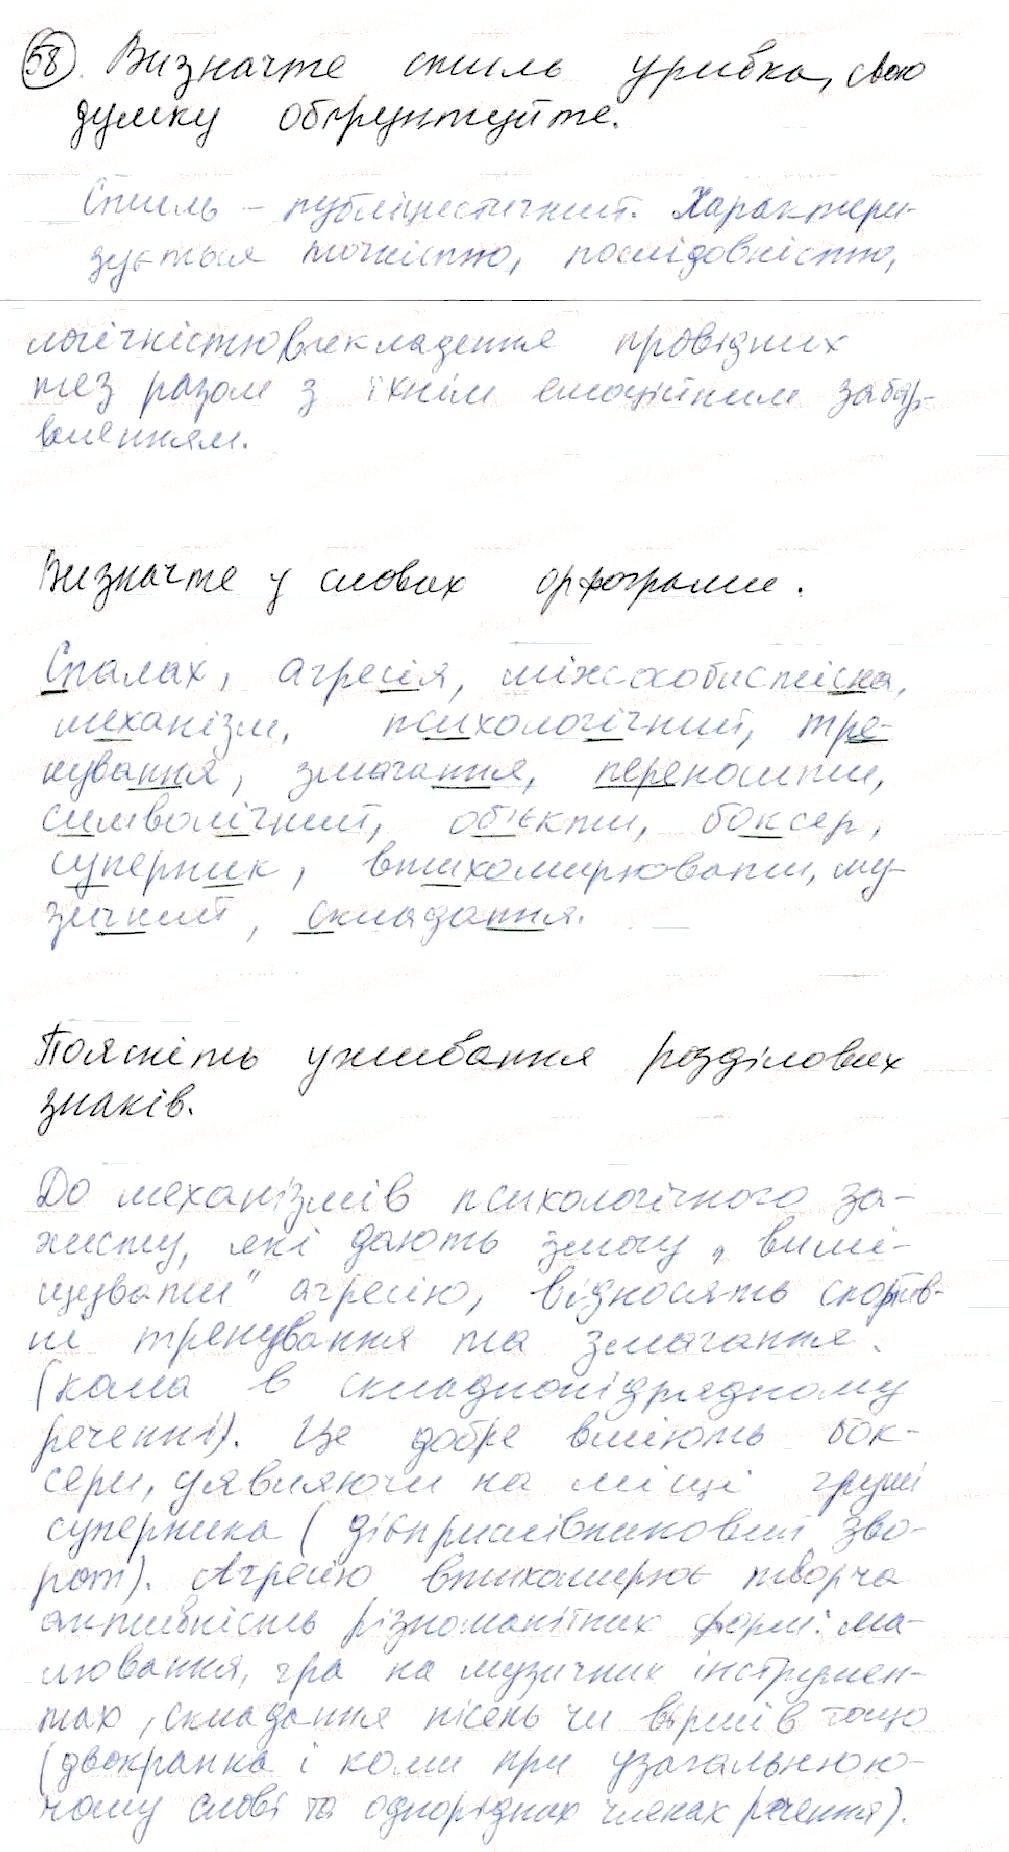 58. Визначте стиль уривка, свою
думку обґрунтуйте.
Стиль – публіцистичний. Характери-
зується точністю, послідовністю,
логічністю викладення провідних
тез разом з їхнім емоційним забар-
вленням.
Визначте у словах орфограми.
Спалах, агресія, міжособистісна,
механізм, психологічний, тре-
нування, змагання, переносити,
символічний, об'єкти, боксер,
суперник, втихомирювати, му-
зичний, складання.
Поясніть уживання розділових
знаків.
До механізмів психологічного за-
хисту, які дають змогу „вимі-
щувати" агресію, відносять спортив-
ні тренування та змагання.
(кома в складнопідрядному
реченні). Це добре вміють бок-
сери, уявляючи на місці груші
суперника (дієприслівниковий зво-
рот). Агресію втихомирює творча
активність різноманітних форм: ма-
лювання, гра на музичних інструмен-
тах, складання пісень чи віршів тощо
(двокрапка і коми при узагальнюю-
чому слові та однорідних членах речення).